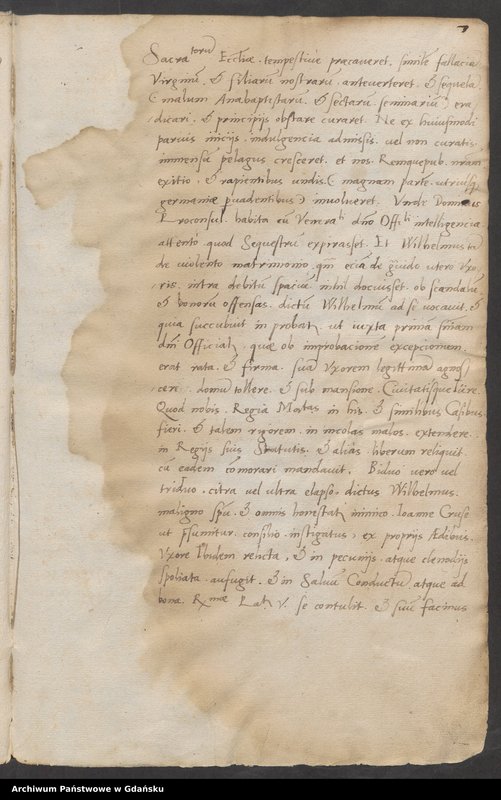 7
Sacratorum Eccl̃iæ tempestiue præcaueret. simile fallacia
Virginũ, & filiarũ nostrarũ anteuerteret. & sequela
( malum Anabaptistarũ, & sectarũ seminariũ ) era
dicari. & principijs obstare curaret. Ne ex huiusmodi
paruis inicijs indulgencia admissis. vel non curatis.
immensũ pelagus cresceret. et nos. Remque pub. nrãm
exitio, & rapientibus vndis ( magnam parte
germaniæ puadentibus ) inuolueret. Vnde Dominus
Proconsul. habita cũ Venerali dño Offili intelligencia
attento quod Sequestrũ expirasset. Et Wilhelmus
de violento matrimonio, eciã de grauido vtero Vxo-
ris. intra debitũ spaciũ nihil docuisset. ob scandalũ
& bonorũ offensas. dictũ Wilhelmũ ad se vocauit, &
quia succubuit in probat. vt iuxta prima sniãm
dñi Official, quæ ob improbacionẽ excepcionum
erat rata. & firma. suã Vxorem legittimã agnos
cere. domũ tollere. & sub mansione
Quod nobis. Regia Mtas in his. & similibus Casibus
fieri. & talem rigorem. in incolas malos. extendere.
in Regijs suis Statutis. & aliàs liberum reliquit.
cũ eadem cõmorari mandauit. Biduo uero vel
triduo. citra vel ultra elapso. dictus Wilhelmus.
maligno spũ. & omnis honestat inimico. Ioanne Cruse
ut psumitur consilio instigatus, ex proprijs Ædibus.
Vxore Ibidem relicta, & in pecunijs. atque clenodijs
spoliata. aufugit. & in Saluũ Conductũ atque ad
bona. Rmæ Pat. V. se contulit. & suũ facinus
Archiwum Państwowe w Gdańsku